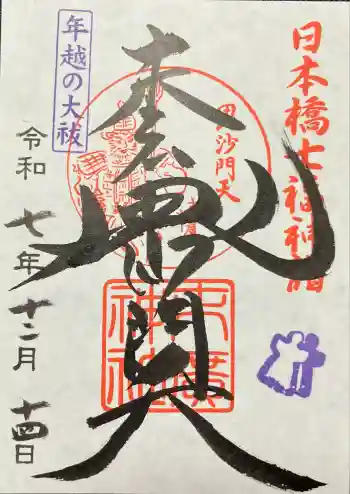 日本橋七福神詣
毘沙門天
奉拝
毘沙門天
末廣神社
年越の大祓
令和七年十二月十四日